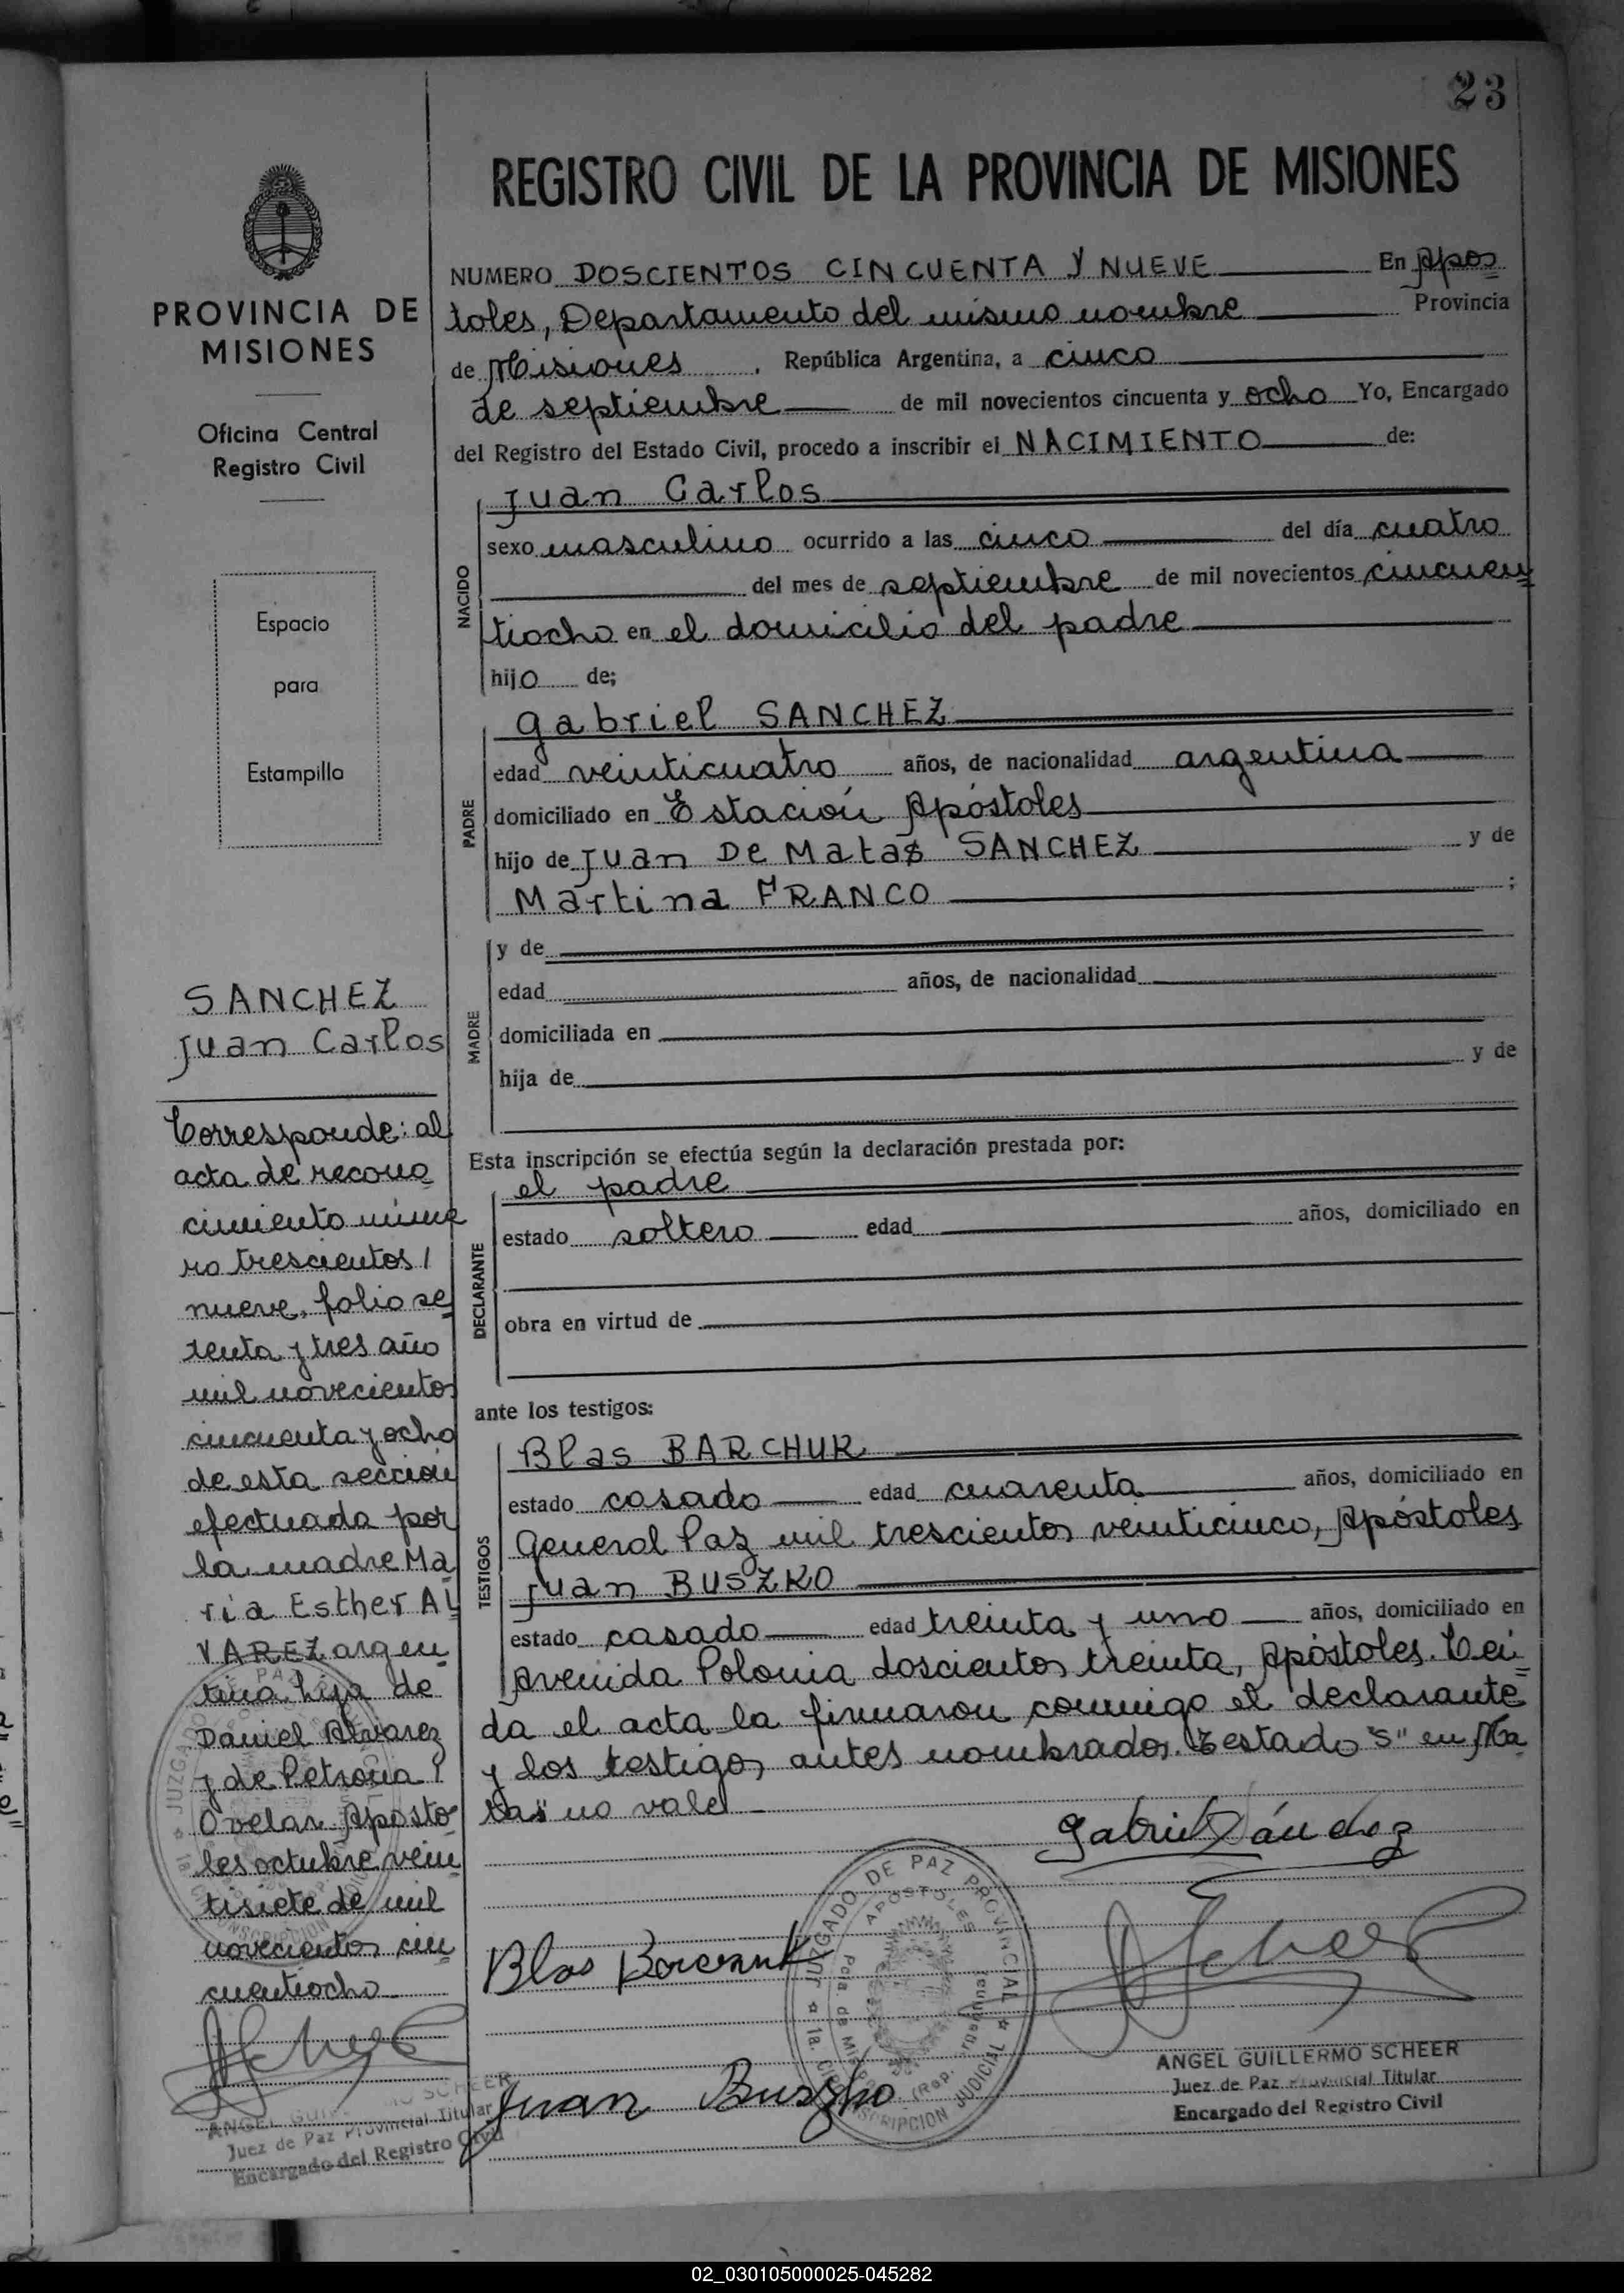 23
REGISTRO CIVIL DE LA PROVINCIA DE MISIONES
PROVINCIA DE
MISIONES
Oficina Central
Registro Civil
Espacio
para
Estampilla
SANCHEZ
Juan Carlos
Corresponde: al
acta de recono
cimiento núme
ro trescientos /
nueve, folio se
tenta y tres año
mil novecientos
cincuenta y ocho
de esta sección
efectuada por
la madre Ma
ria Esther AL
VAREZ argen
tina hija de
Daniel Alvarez
y de Petrona
Ovelar. Aposto
les octubre vein
tisiete de mil
novecientos cin
cuentiocho
ANGEL GUILLERMO SCHEER
Juez de Paz Provincial Titular
Encargado del Registro Civil
NUMERO DOSCIENTOS CINCUENTA Y NUEVE En Apos
toles, Departamento del mismo nombre Provincia
de Misiones, República Argentina, a cinco
de septiembre de mil novecientos cincuenta y ocho Yo, Encargado
del Registro del Estado Civil, procedo a inscribir el NACIMIENTO de:
NACIDO
Juan Carlos
sexo masculino ocurrido a las cinco del día cuatro
del mes de septiembre de mil novecientos cincuen
tiocho en el domicilio del padre
hijo de;
PADRE
Gabriel SANCHEZ
edad veinticuatro años, de nacionalidad argentina
domiciliado en Estación Apóstoles
hijo de Juan De Matas SANCHEZ y de
Martina FRANCO ;
MADRE
y de
edad años, de nacionalidad
domiciliada en
hija de y de
Esta inscripción se efectúa según la declaración prestada por:
DECLARANTE
el padre
estado soltero edad años, domiciliado en
obra en virtud de
ante los testigos:
TESTIGOS
Blas BARCHUK
estado casado edad cuarenta años, domiciliado en
General Paz mil trescientos veinticinco, Apóstoles
Juan BUSZKO
estado casado edad treinta y uno años, domiciliado en
Avenida Polonia doscientos treinta, Apóstoles. Leí
da el acta la firmaron conmigo el declarante
y los testigos antes nombrados. Testado "s" en "Ma
tas" no vale
Gabriel Sánchez
Blas
JUZGADO DE PAZ PROVINCIAL
APOSTOLES
1a. CIRCUNSCRIPCION JUDICIAL
Juan Buszko
ANGEL GUILLERMO SCHEER
Juez de Paz Provincial Titular
Encargado del Registro Civil
02_030105000025-045282